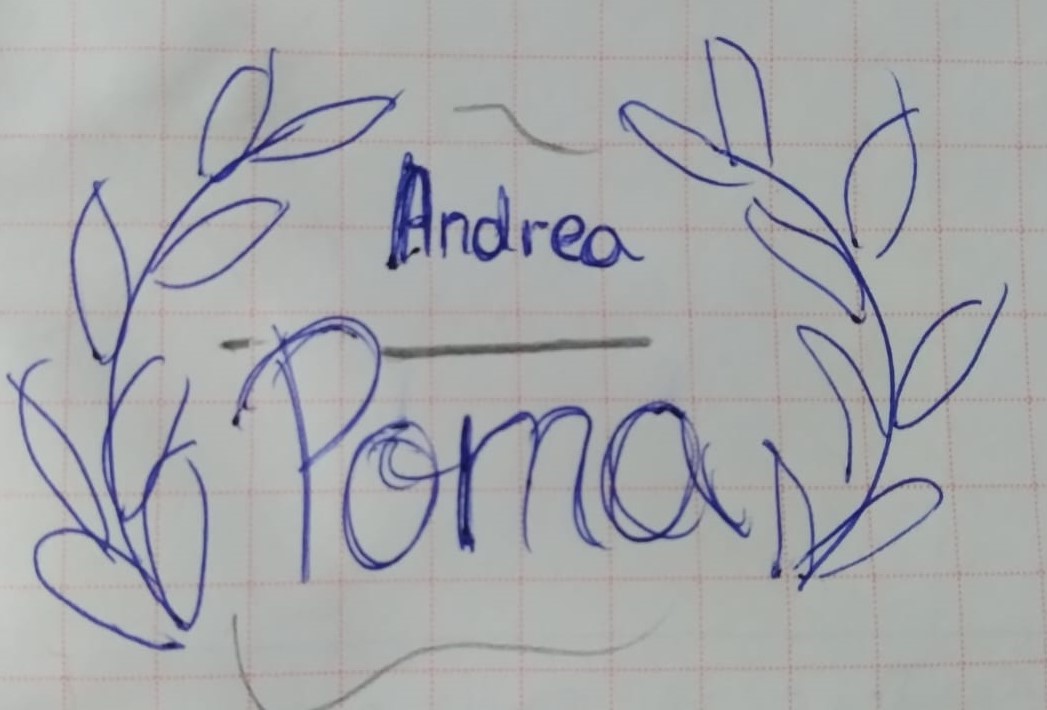 Andrea
Poma